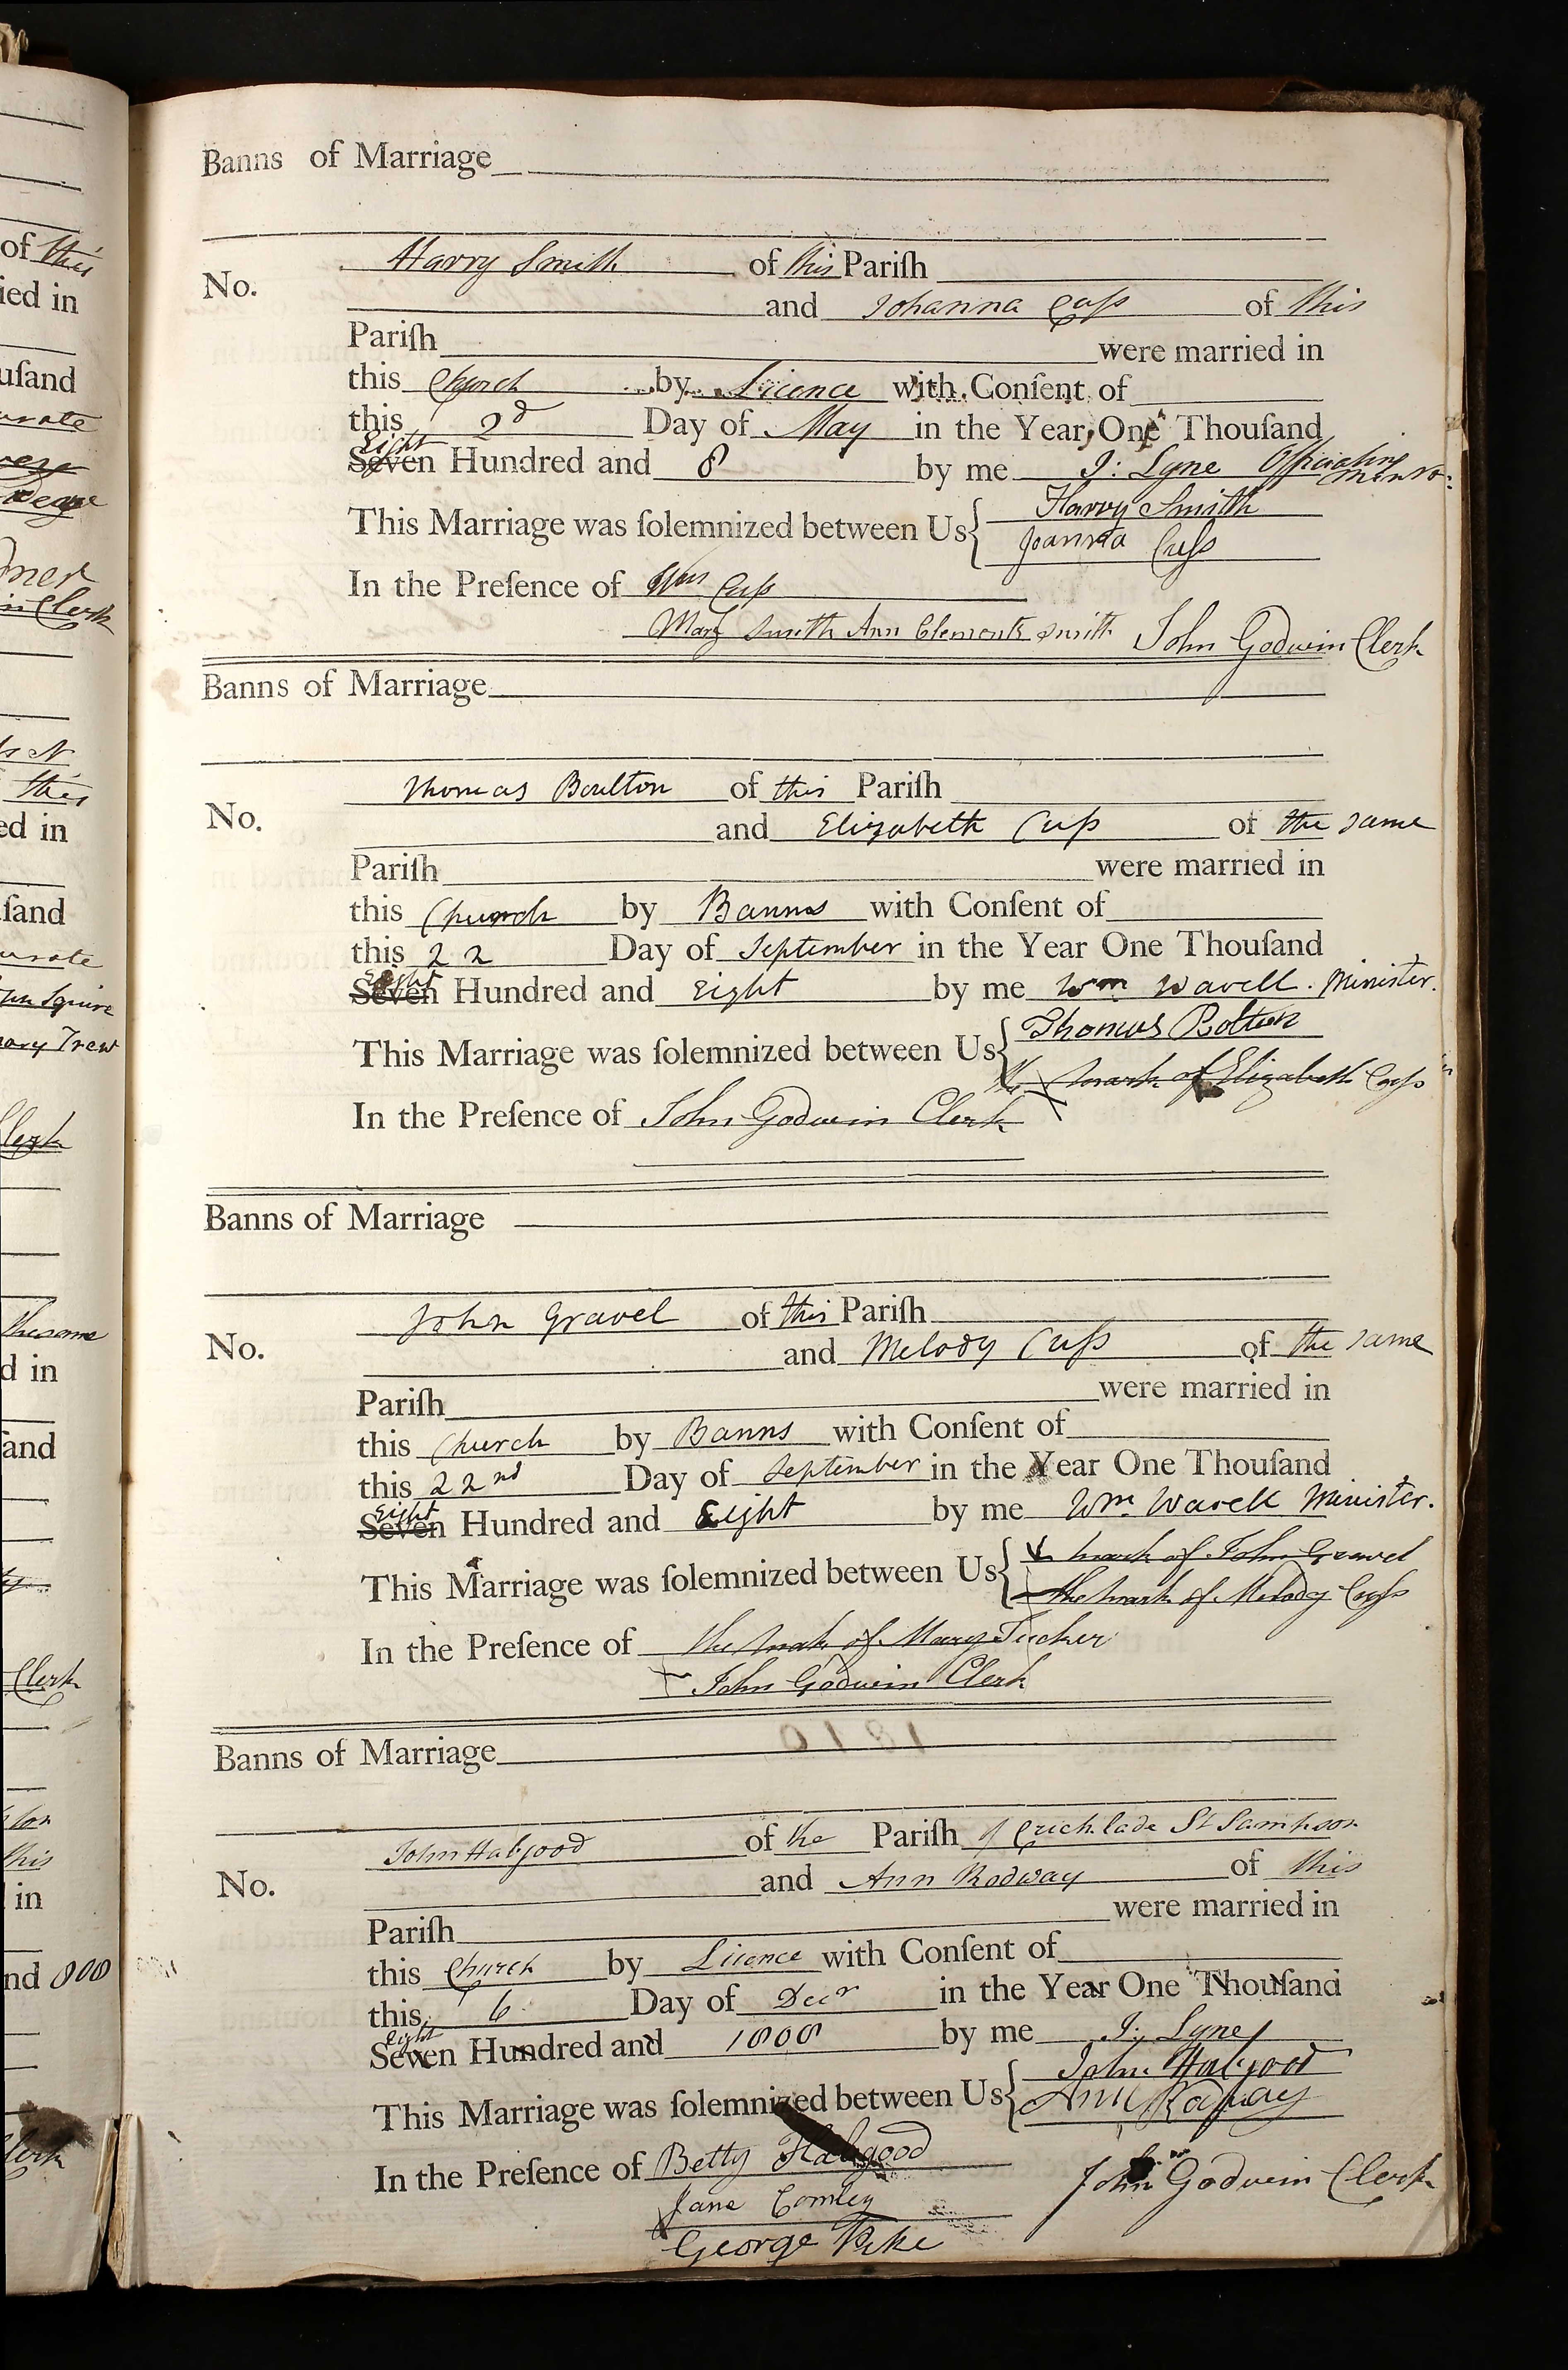 Banns of Marriage
Harry Smith of this Pariſh
No.
and Johanna Cuſs of this
Pariſh were married in
this Church by Licence with Conſent of
this 2d Day of May in the Year One Thouſand
Eight
Seven Hundred and 8 by me J: Lyne Officiating
This Marriage was ſolemnized between Us { Harry Smith
Joanna Cuſs
In the Preſence of Wm Cuſs
Mary Smith Ann Clements Smith John Godwin Clerk
Banns of Marriage
Thomas Boulton of this Pariſh
No.
and Elizabeth Cuſs of the same
Pariſh were married in
this Church by Banns with Conſent of
this 22 Day of September in the Year One Thouſand
Eight
Seven Hundred and Eight by me Wm Wavell. Minister.
This Marriage was ſolemnized between Us { Thomas Bolton
The mark of Elizabeth Cuſs
In the Preſence of John Godwin Clerk
Banns of Marriage
John Gravel of this Pariſh
No.
and Melody Cuſs of the same
Pariſh were married in
this Church by Banns with Conſent of
this 22nd Day of September in the Year One Thouſand
Eight
Seven Hundred and Eight by me Wm Wavell Minister.
This Marriage was ſolemnized between Us { mark of John Gravel
the mark of Melody Cuſs
In the Preſence of the mark of Mary Tucker
John Godwin Clerk
Banns of Marriage
John Habgood of the Pariſh of Cricklade St Sampson
No.
and Ann Rodway of this
Pariſh were married in
this Church by Licence with Conſent of
this 6 Day of Decr in the Year One Thouſand
Eight
Seven Hundred and 1808 by me J: Lyne
This Marriage was ſolemnized between Us { John Habgood
Ann Radway
In the Preſence of Betty Habgood
John Godwin Clerk
Jane Comley
George Pike